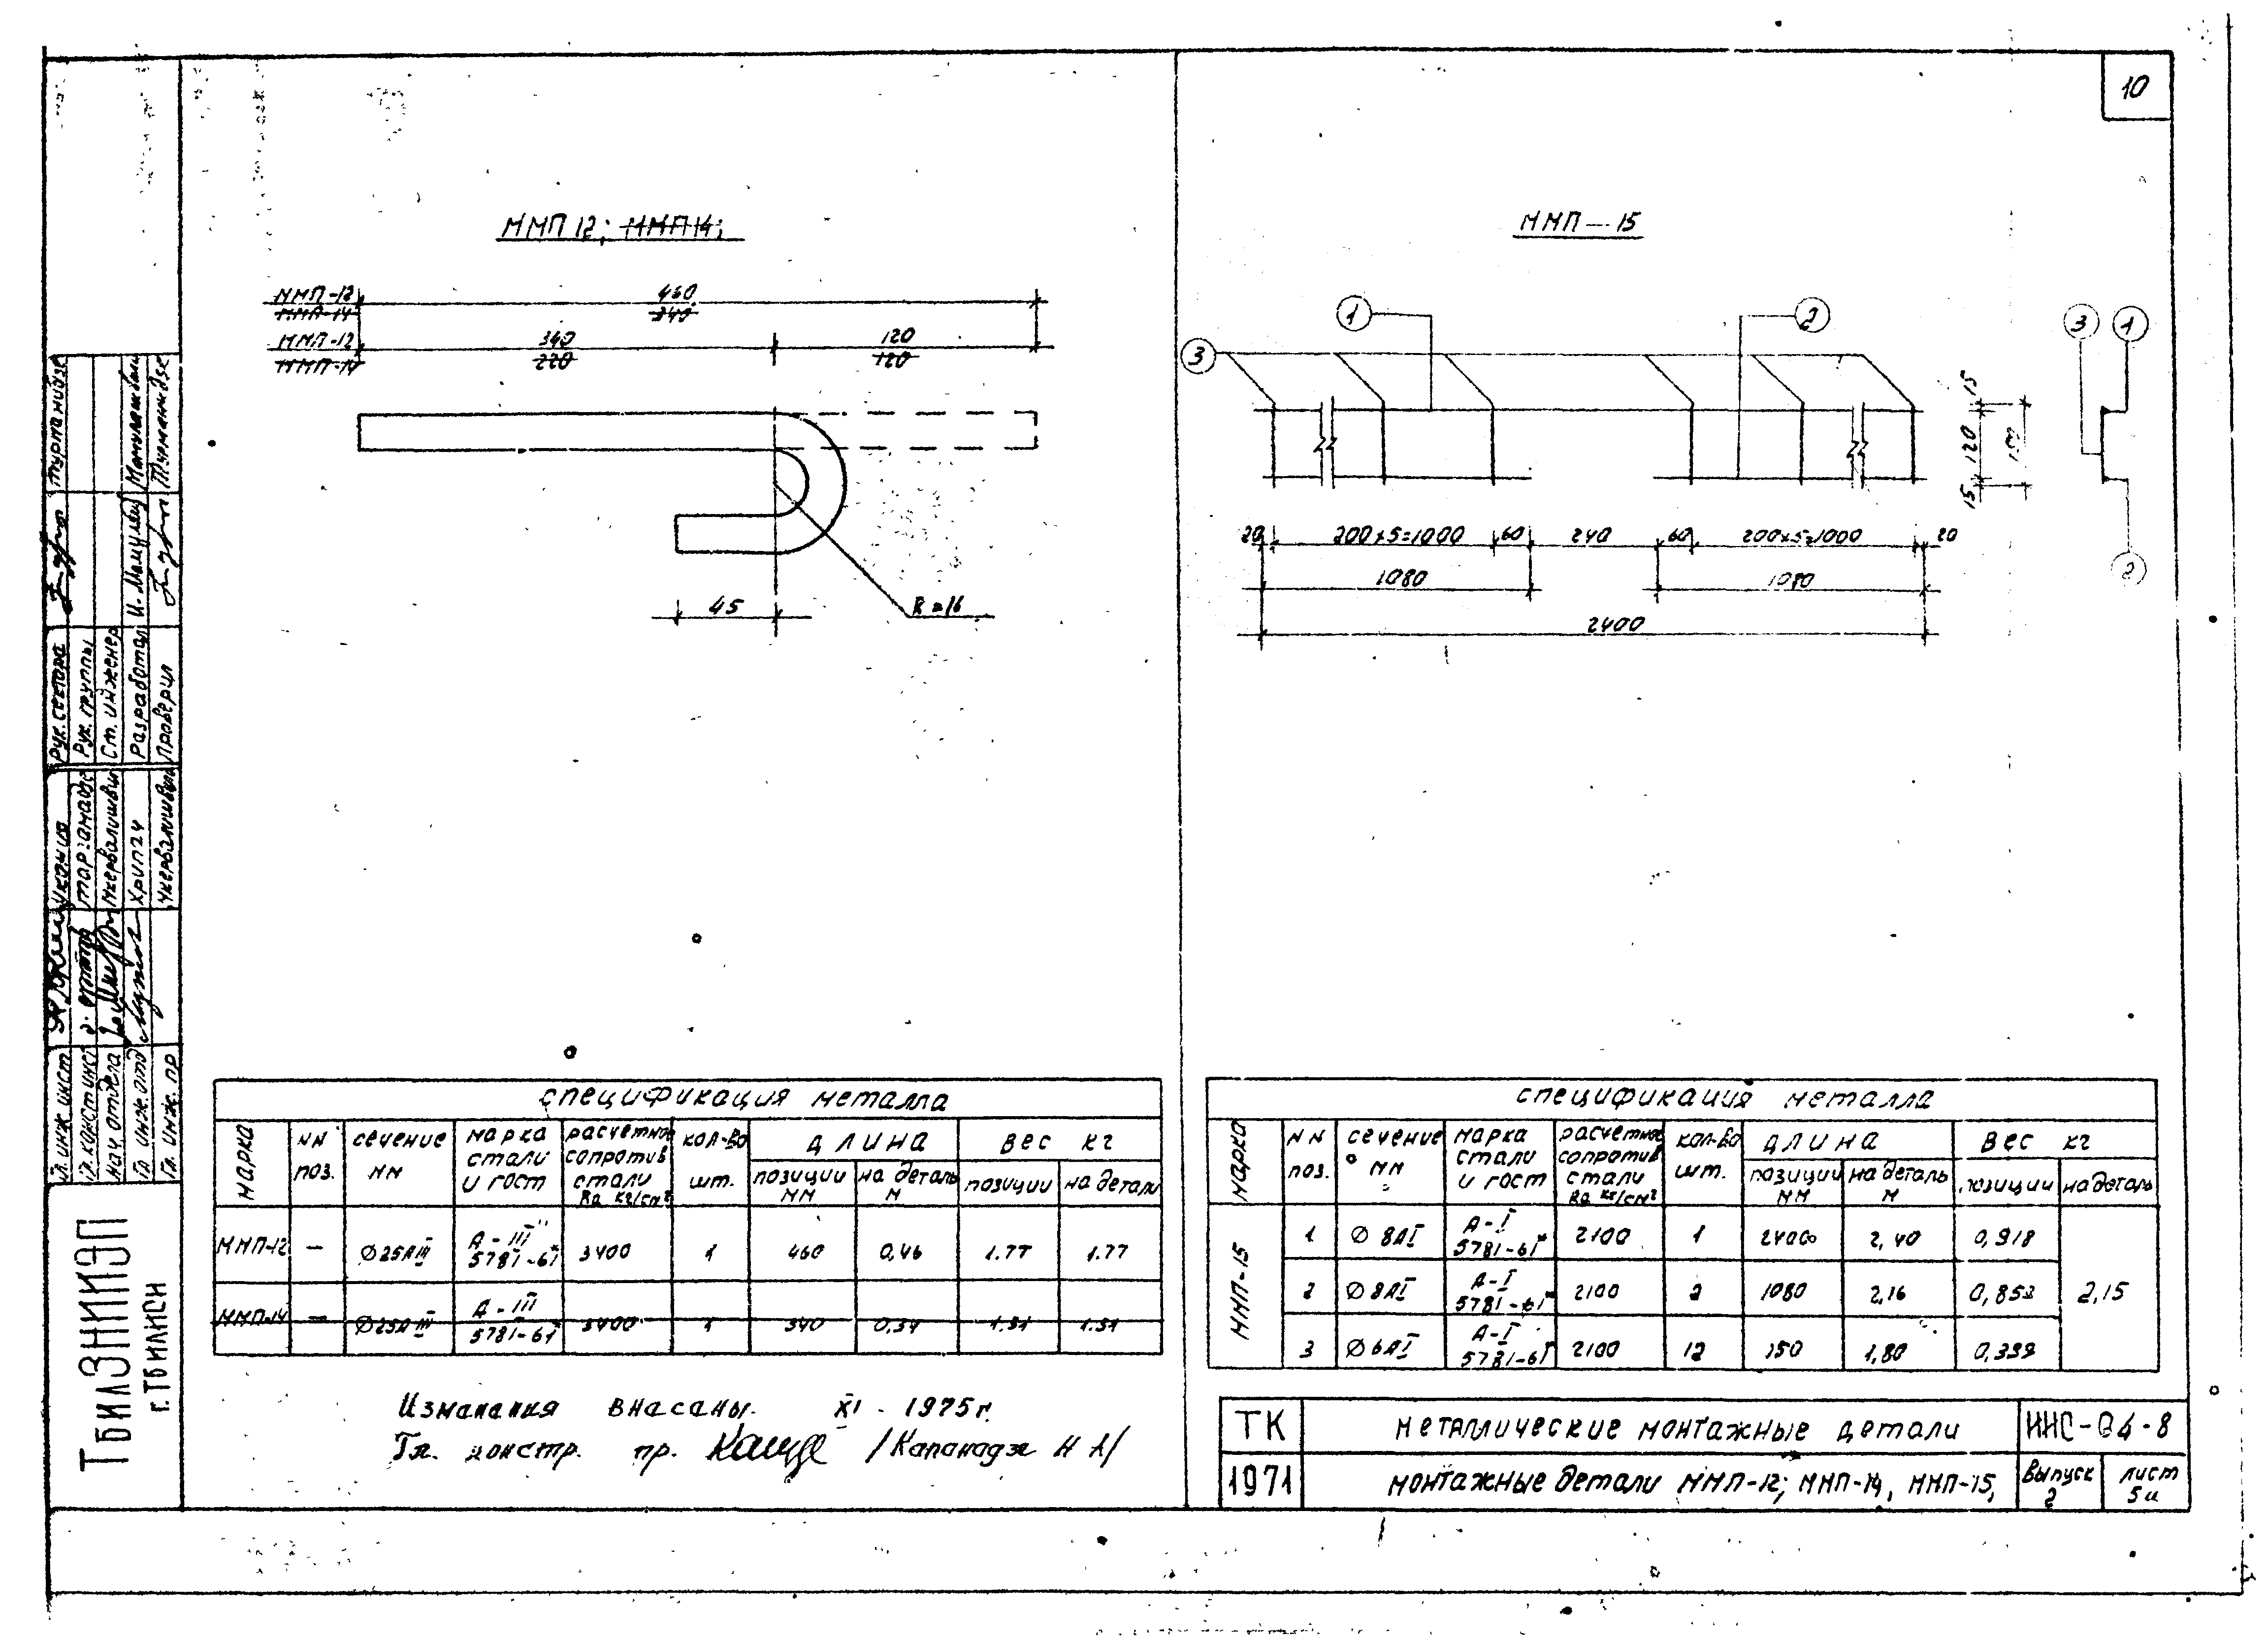 10
ММП 12; ММП 14;
ММП-12 460
ММП-14 340
ММП-12 340 120
ММП-14 220 120
45
R=16
ММП-15
1 2 3
3 1
2
15 120 15
20 200x5=1000 60 240 60 200x5=1000 20
1080 1080
2400
спецификация металла
марка
NN поз.
сечение мм
марка стали и гост
расчетное сопротив стали Ra кг/см²
кол-во шт.
длина
позиции мм
на деталь м
вес кг
позиции
на детали
ММП-12 — Ø25АIII А-III 5781-61 3400 1 460 0,46 1.77 1.77
ММП-14 — Ø25АIII А-III 5781-61 3400 1 340 0,34 1.31 1.31
Изменения внесены XI - 1975г.
Гл. констр. пр. /Капанадзе Н А/
спецификация металла
марка
NN поз.
сечение мм
марка стали и гост
расчетное сопротив стали Ra кг/см²
кол-во шт.
длина
позиции мм
на деталь м
вес кг
позиции
на деталь
ММП-15
1 Ø 8АI А-I 5781-61* 2100 1 2400 2,40 0,918
2 Ø8АI А-I 5781-61* 2100 2 1080 2,16 0,853 2,15
3 Ø6АI А-I 5781-61 2100 12 150 1,80 0,399
ТК
1971
металлические монтажные детали
монтажные детали ММП-12; ММП-14, ММП-15,
ИИС-04-8
выпуск 2
лист 5и
ТбилЗНИИЭП
г. Тбилиси
Рук. сектора
Рук. группы
Ст. инженер
Разработал
Проверил
Гл. инж инст
Гл. конст инст
нач отдела
Гл. инж. отд
Гл. инж. пр